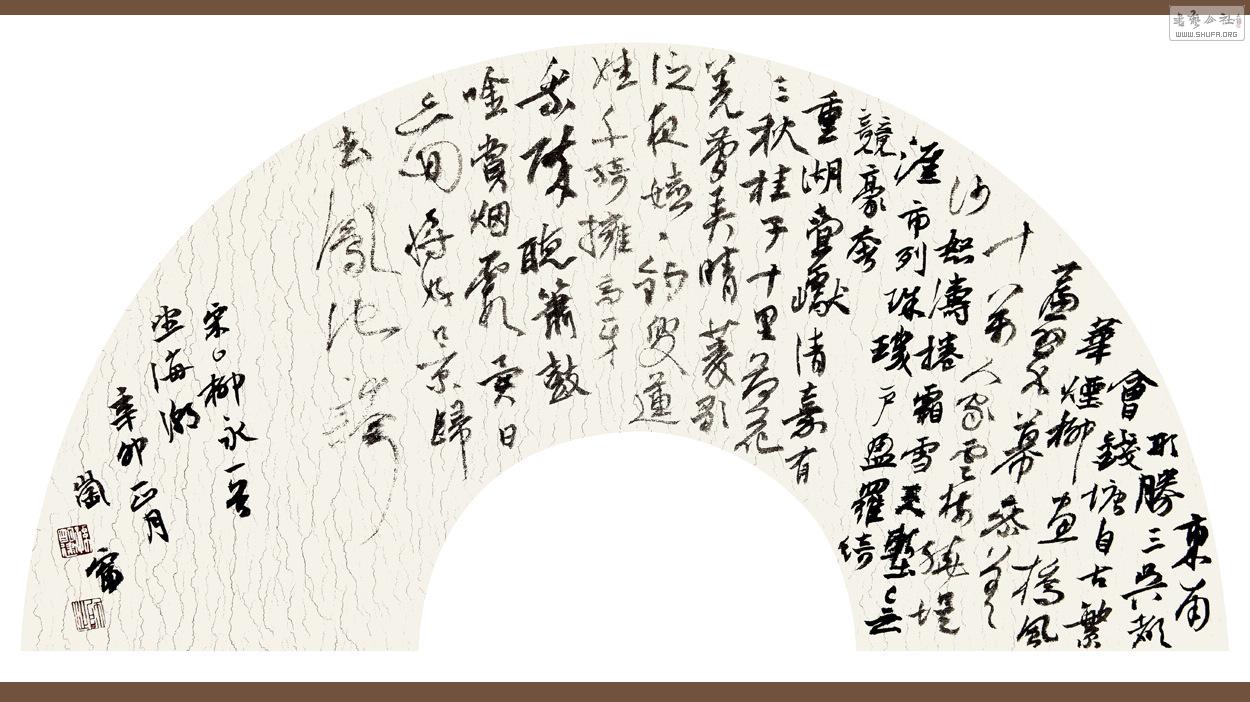 東南
形勝三吳都
會錢塘自古繁
華煙柳畫橋風
簾翠幕參差
十萬人家雲樹繞堤
沙怒濤捲霜雪天塹無
涯市列珠璣戶盈羅綺
競豪奢
重湖疊巘清嘉有
三秋桂子十里荷花
羌管弄晴菱歌
泛夜嬉〻釣叟蓮
娃千騎擁高牙
乘醉聽簫鼓
吟賞烟霞異日
圖將好景歸
去鳳池誇
宋柳永一首
望海潮
辛卯正月
WWW.SHUFA.ORG